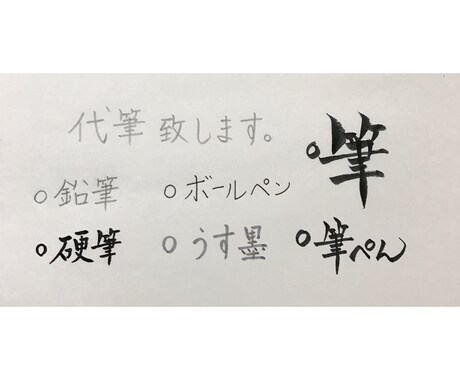 代筆致します。
○筆
○鉛筆 ○ボールペン
○硬筆 ○うす墨 ○筆ぺん